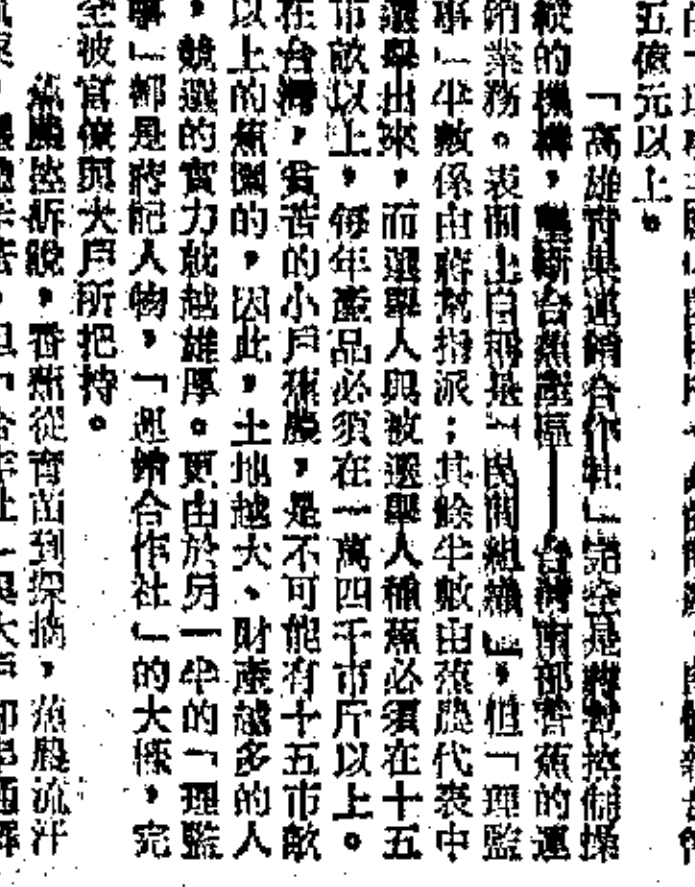 五億元以上。
「高雄青果運銷合作社」完全是蔣幫控制操
縱的機構，壟斷台蕉產區——台灣南部香蕉的運
銷業務。表面上自稱是「民間組織」，但「理監
事」半數係由蔣幫指派；其餘半數由蕉農代表中
選舉出來，而選舉人與被選舉人種蕉必須在十五
市畝以上，每年產品必須在一萬四千市斤以上。
在台灣，貧苦的小戶蕉農，是不可能有十五市畝
以上的蕉園的，因此，土地越大、財產越多的人
，競選的實力就越雄厚。更由於另一半的「理監
事」都是蔣記人物，「運銷合作社」的大權，完
全被官僚與大戶所把持。
蕉農控訴說，香蕉從育苗到採摘，蕉農流汗